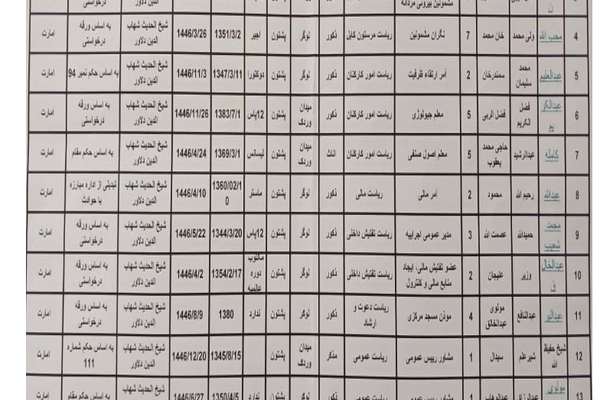 ن مشمولین بیرونی مردانه
4 محب الله ولی محمد خان محمد 7 نگران مشمولین ریاست مرستون کابل ذکور لوگر پشتون اجیر 1351/3/2 1446/3/26 شیخ الحدیث شهاب الدین دلاور به اساس ورقه درخواستی امارت
5 عبدالعلیم محمد سلیمان سمندرخان 2 آمر ارتقاء ظرفیت ریاست امور کارکنان ذکور لوگر پشتون دوکتورا 1347/3/11 1446/11/3 شیخ الحدیث شهاب الدین دلاور به اساس حکم نمبر 94 امارت
6 عبدالکریم فضل الکریم فضل الربی 5 معلم جیولوژی ریاست امور کارکنان ذکور میدان وردک پشتون 12پاس 1383/7/1 1446/11/26 شیخ الحدیث شهاب الدین دلاور به اساس ورقه درخواستی امارت
7 کامله عبدالرشید حاجی محمد یعقوب 5 معلم اصول صنفی ریاست امور کارکنان اناث میدان وردک پشتون لیسانس 1369/3/1 1446/4/24 شیخ الحدیث شهاب الدین دلاور به اساس حکم مقام امارت
8 عبدالله رحیم الله محمود 2 آمر مالی ریاست مالی ذکور لوگر پشتون ماستر 1360/02/10 1446/4/10 شیخ الحدیث شهاب الدین دلاور تبدیلی از اداره مبارزه با حوادث امارت
9 محمد شعیب حمیدالله عصمت الله 3 مدیر عمومی اجراییه ریاست تفتیش داخلی ذکور لوگر پشتون 12پاس 1344/3/20 1446/5/22 شیخ الحدیث شهاب الدین دلاور به اساس ورقه درخواستی امارت
10 وزیر علیجان 2 عضو تفتیش مالی، ایجاد منابع مالی و کنترول ریاست تفتیش داخلی ذکور لوگر پشتون دوره عالمیه 1354/2/17 1446/4/2 شیخ الحدیث شهاب الدین دلاور به اساس ورقه درخواستی امارت
11 عبدالبر عبدالنافع مولوی عبدالخالق 4 موذن مسجد مرکزی ریاست دعوت و ارشاد ذکور لوگر پشتون ندارد 1380 1446/8/9 شیخ الحدیث شهاب الدین دلاور به اساس ورقه درخواستی امارت
12 شیخ حفیظ الله شیرعلم سیدال 1 مشاور رییس عمومی ریاست عمومی مذکر میدان وردک پشتون 1345/8/15 1446/12/20 شیخ الحدیث شهاب الدین دلاور به اساس حکم شماره 111 امارت
13 مولوی عبدالوهاب 1 مشاور رییس عمومی ریاست عمومی ذکور لوگر پشتون ندارد 1350/4/5 1446/6/27 شیخ الحدیث شهاب به اساس حکم مقام امارت